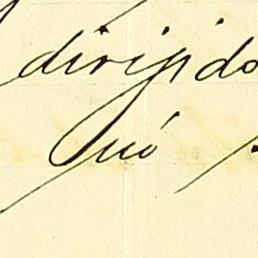 dirigido
Quó